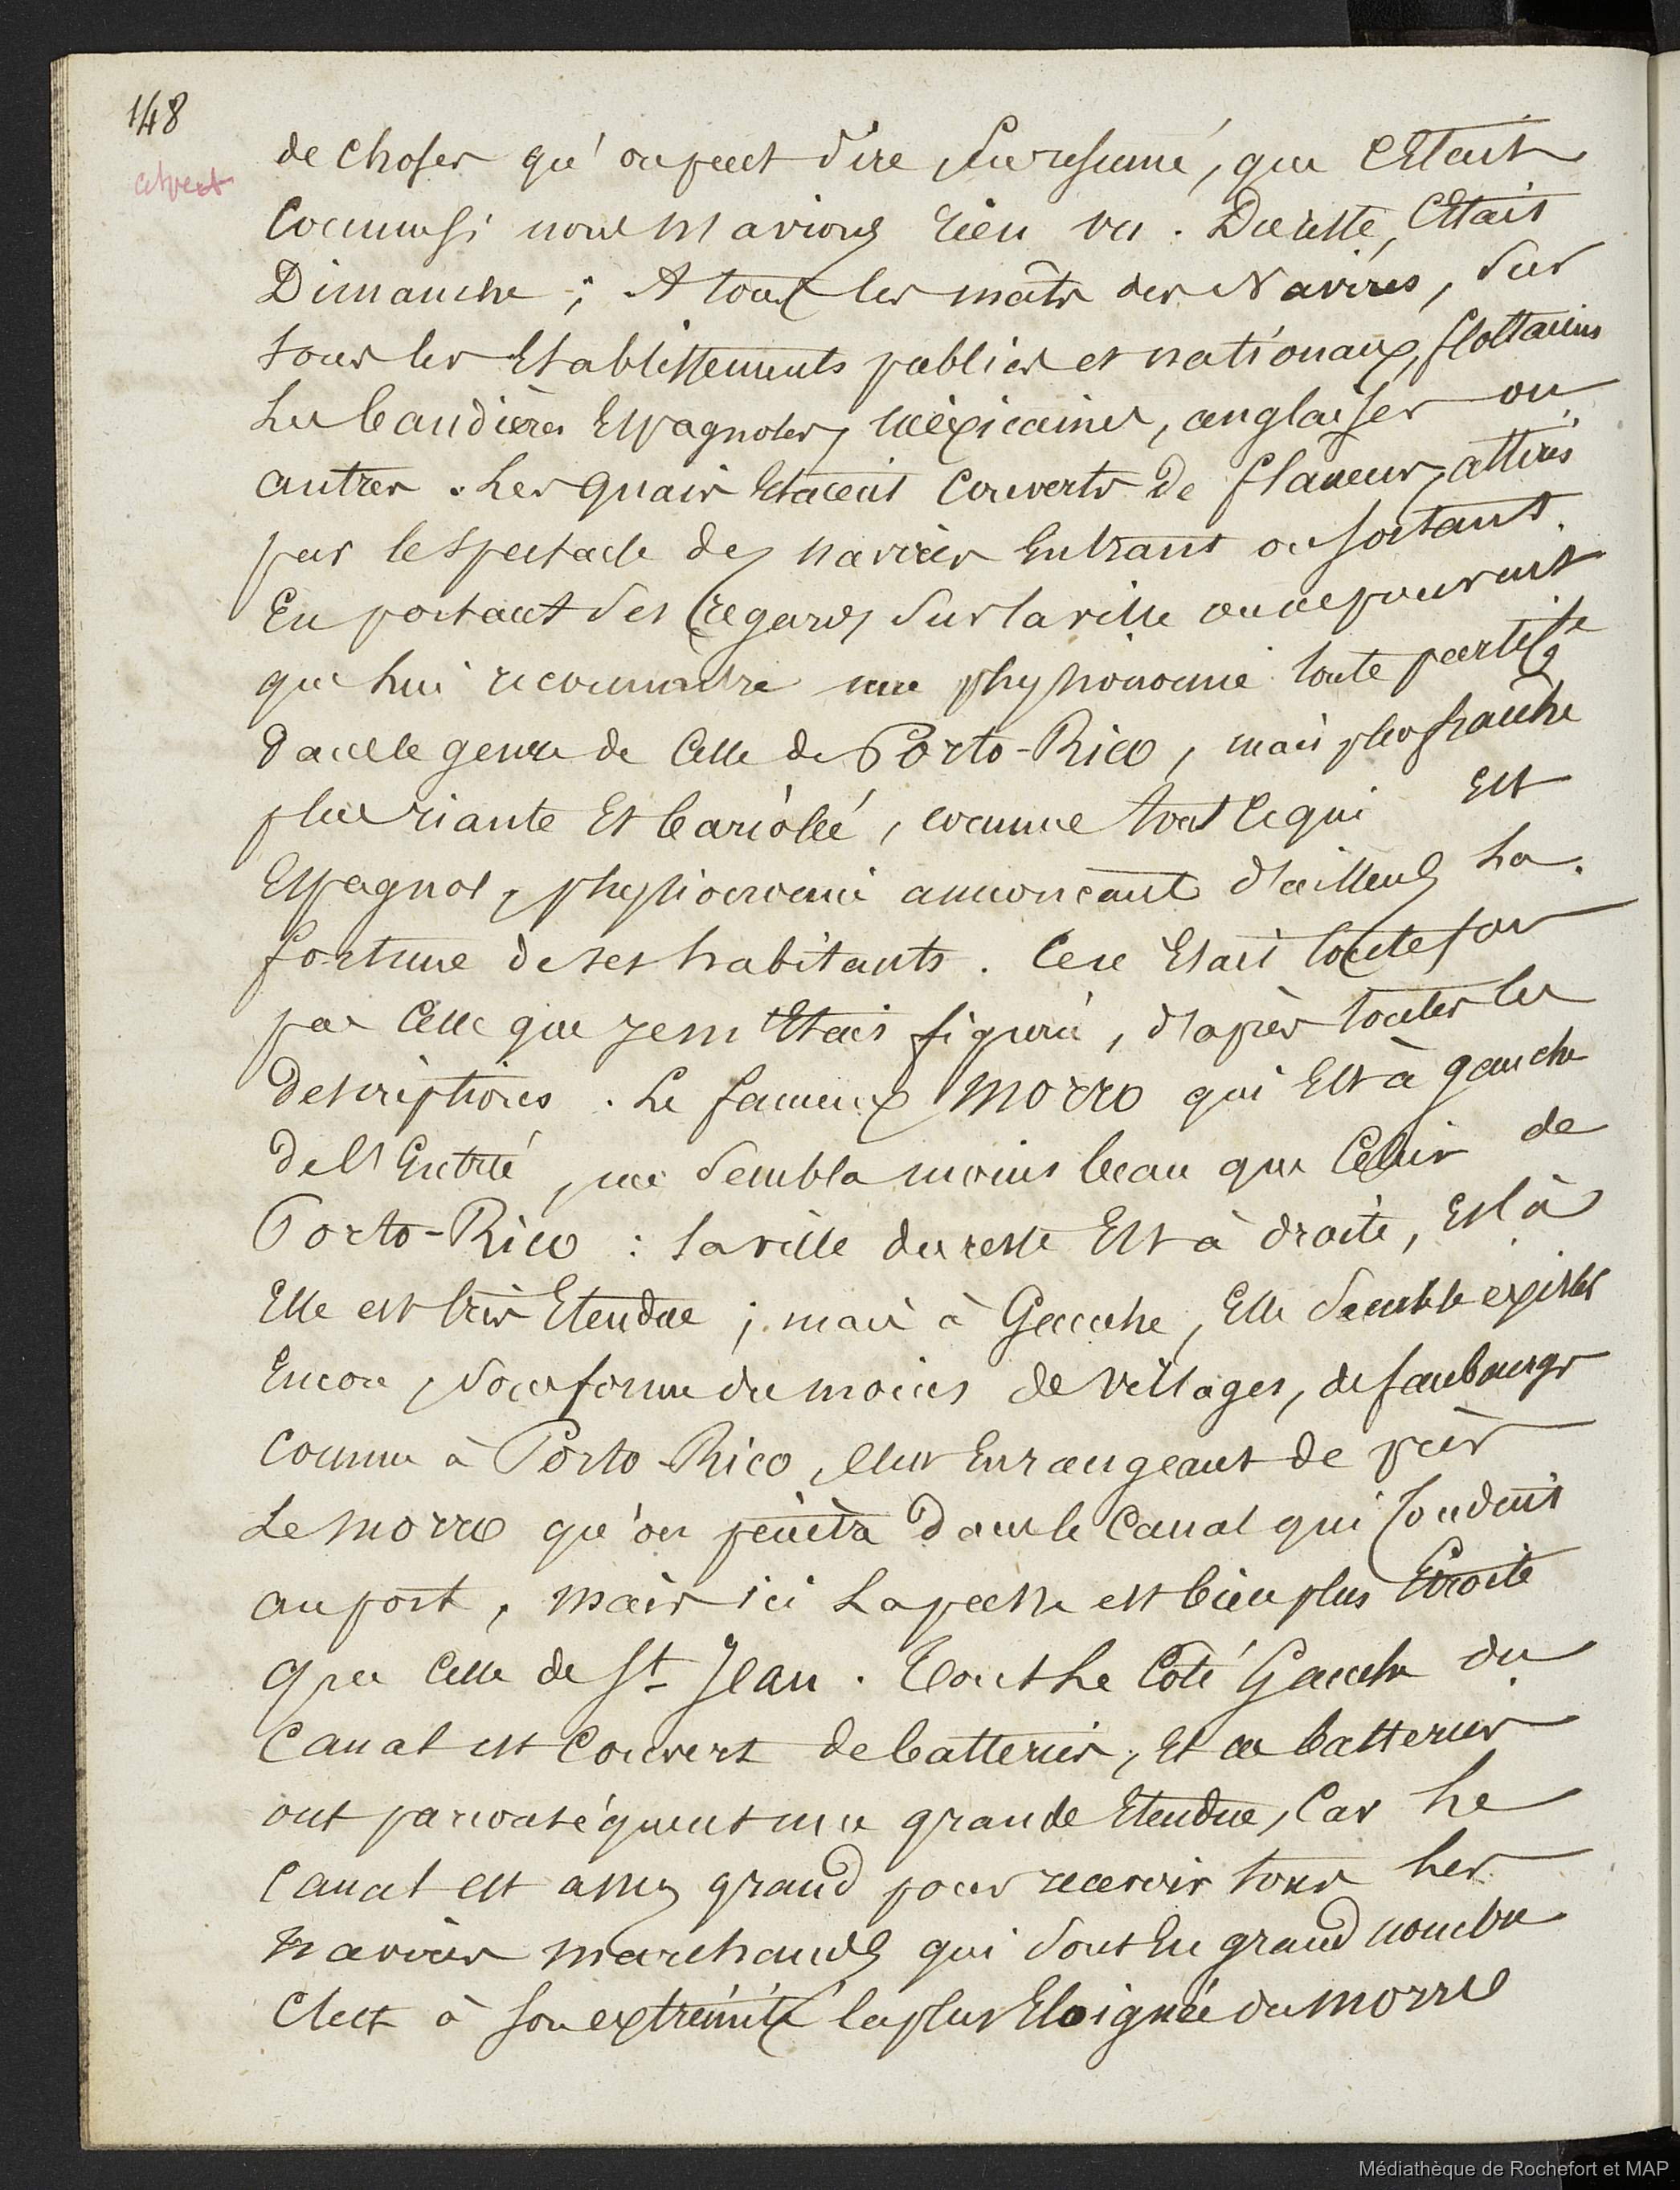 148
de choses qu'on peut dire En resumé, que C'Etait
Comme si nous n'avions rien vu. Du reste, C'Etait
Dimanche ; A tous les mats des Navires, sur
tous les Etablissements publics et nationaux, flottaient
Les bandières Espagnoles, Méxicaines, anglaises ou
autres. Les quais Etaient Couverts de flaneurs, attirés
par le spectacle des navires Entrant ou sortant.
En portant ses regards sur la ville on ne pouvait
que lui reconnaitre une physionomie toute
dans le genre de Celle de Porto-Rico, mais plus franche
plus riante Et bariolée, comme tout ce qui Est
Espagnol, physionomie annoncant d'ailleurs La
fortune de ses habitants. Ce ne Etait toutefois
pas Celle que je m'Etais figuré, d'après toutes les
descriptions. Le fameux Morro qui Est à gauche
de l'Entrée, me sembla moins beau que Celui de
Porto-Rico : La ville du reste Est à droite, Et là
Elle est très Etendue ; mais à Gauche, Elle semble exister
Encore, sous forme du moins de villages, de faubourgs
Comme à Porto-Rico, c'est En rangeant de près
Le Morro qu'on pénètre dans le Canal qui Conduit
au port, mais ici La passe est bien plus Etroite
que Celle de St Jean. Tout Le Coté Gauche du
Canal est Couvert de batteries, Et ces batteries
ont par conséquent une grande Etendue, Car Le
Canal est assez grand pour recevoir tous Les
navires marchands qui sont En grand nombre
C'est à son extrémité la plus Eloignée du Morro
Médiathèque de Rochefort et MAP